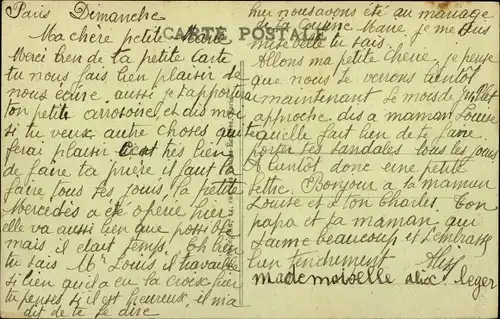 Paris Dimanche
CARTE POSTALE
Ma chère petite Marie
Merci bien de ta petite carte
tu nous fais bien plaisir de
nous écrire aussi je t'apporterai
ton petite arrosoire et dis moi
si tu veux autre choses qui te
ferai plaisir C'est très bien
de faire ta prière il faut la
faire tous les jours la petite
Mercédès a été opérié hier
elle va aussi bien que possible
mais il était temps. Eh bien
tu sais Mr Louis, il travaille
si bien qu'il a eu la croix hier
tu penses, si il est heureux, il m'a
dit de te le dire
hier nous avons été au mariage
de la cousine Marie, je me suis
mise belle tu sais.
Allons ma petite chérie, je pense
que nous te verrons bientôt
maintenant le mois de juillet
approche dis a maman Louise
quelle fait bien de te faire
porter tes sandales tous les jours
A bientôt donc une petite
lettre. Bonjour a ta maman
Louise et a ton Charles. Ton
papa et ta maman qui
t'aime beaucoup et t'embrasse
bien tendrement Alix
mademoiselle alix leger